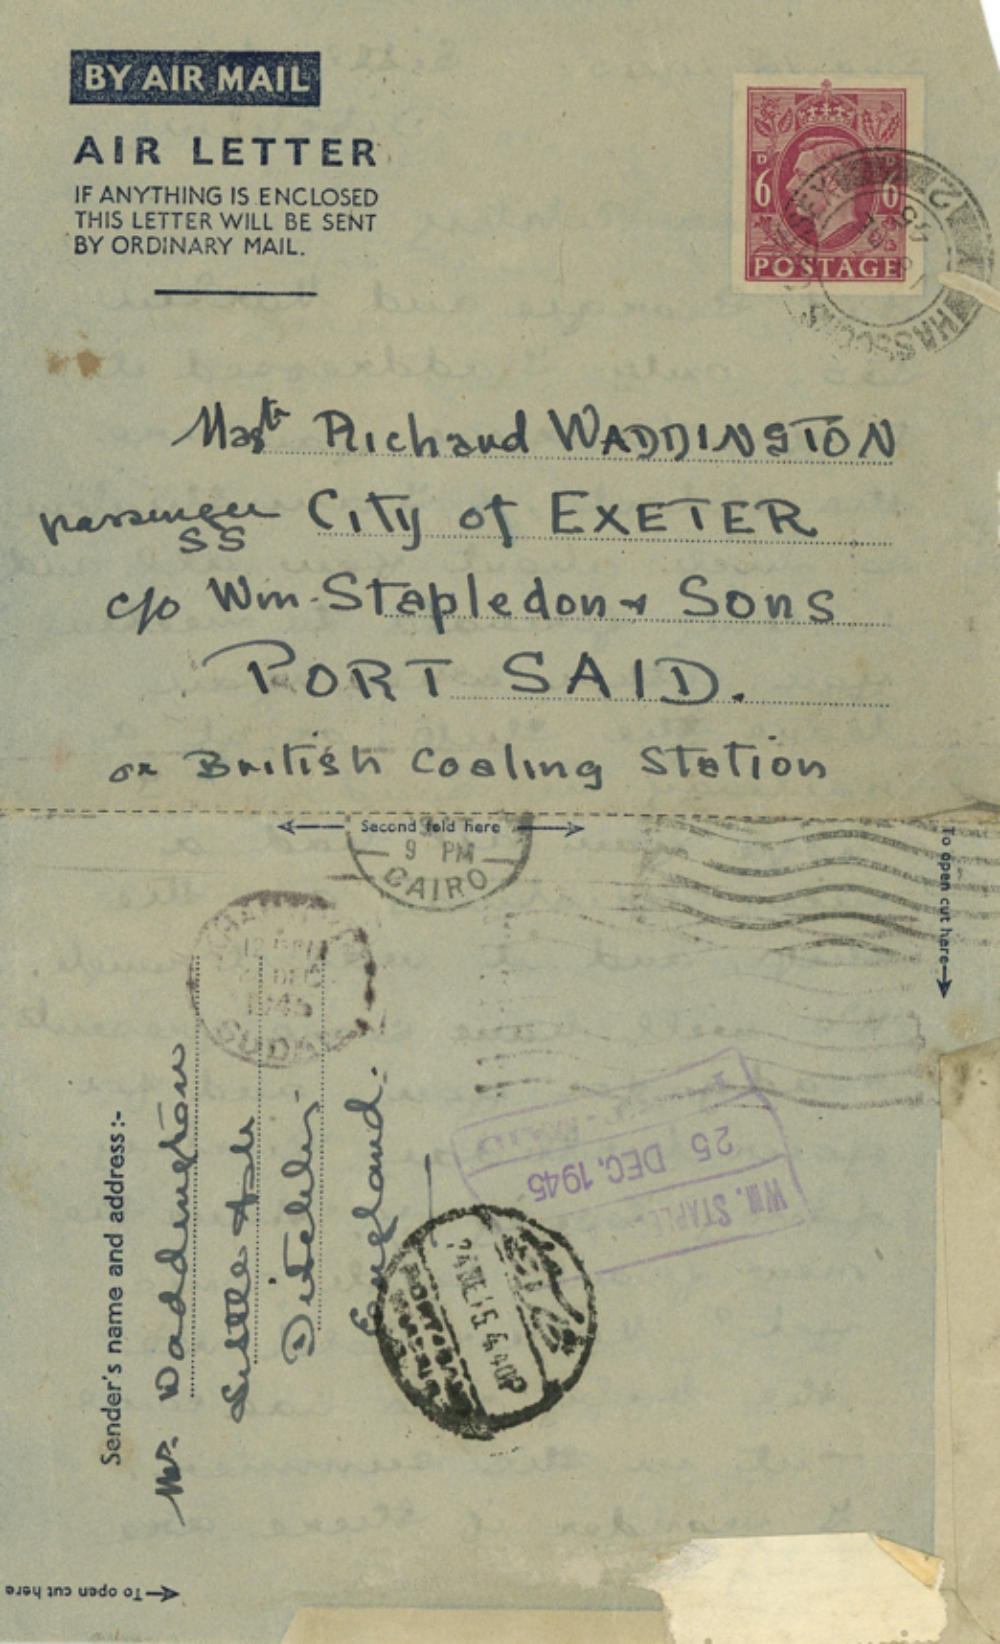 BY AIR MAIL
AIR LETTER
IF ANYTHING IS ENCLOSED
THIS LETTER WILL BE SENT
BY ORDINARY MAIL.
D D
6 6
POSTAGE
HASSOCKS
Mastr Richard WADDINGTON
passenger City of EXETER
SS
c/o Wm. Stapledon & Sons
PORT SAID.
or British Coaling Station
Second fold here
9 PM
CAIRO
To open cut here
25 DEC. 1945
WM. STAPLE
Sender's name and address:-
Mrs. Waddington
Little Ash
Ditchling
England.
To open cut here